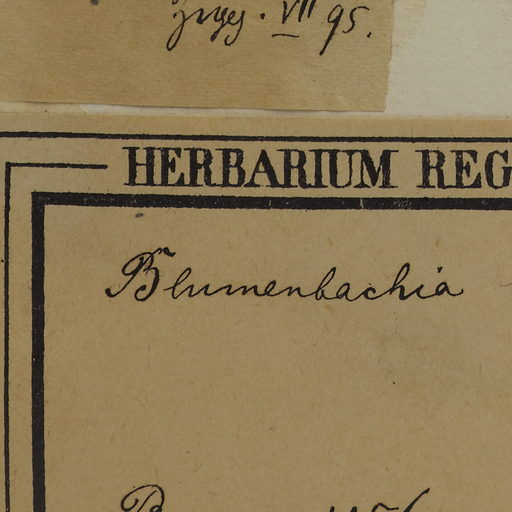 VII 95.
HERBARIUM REG
Blumenbachia